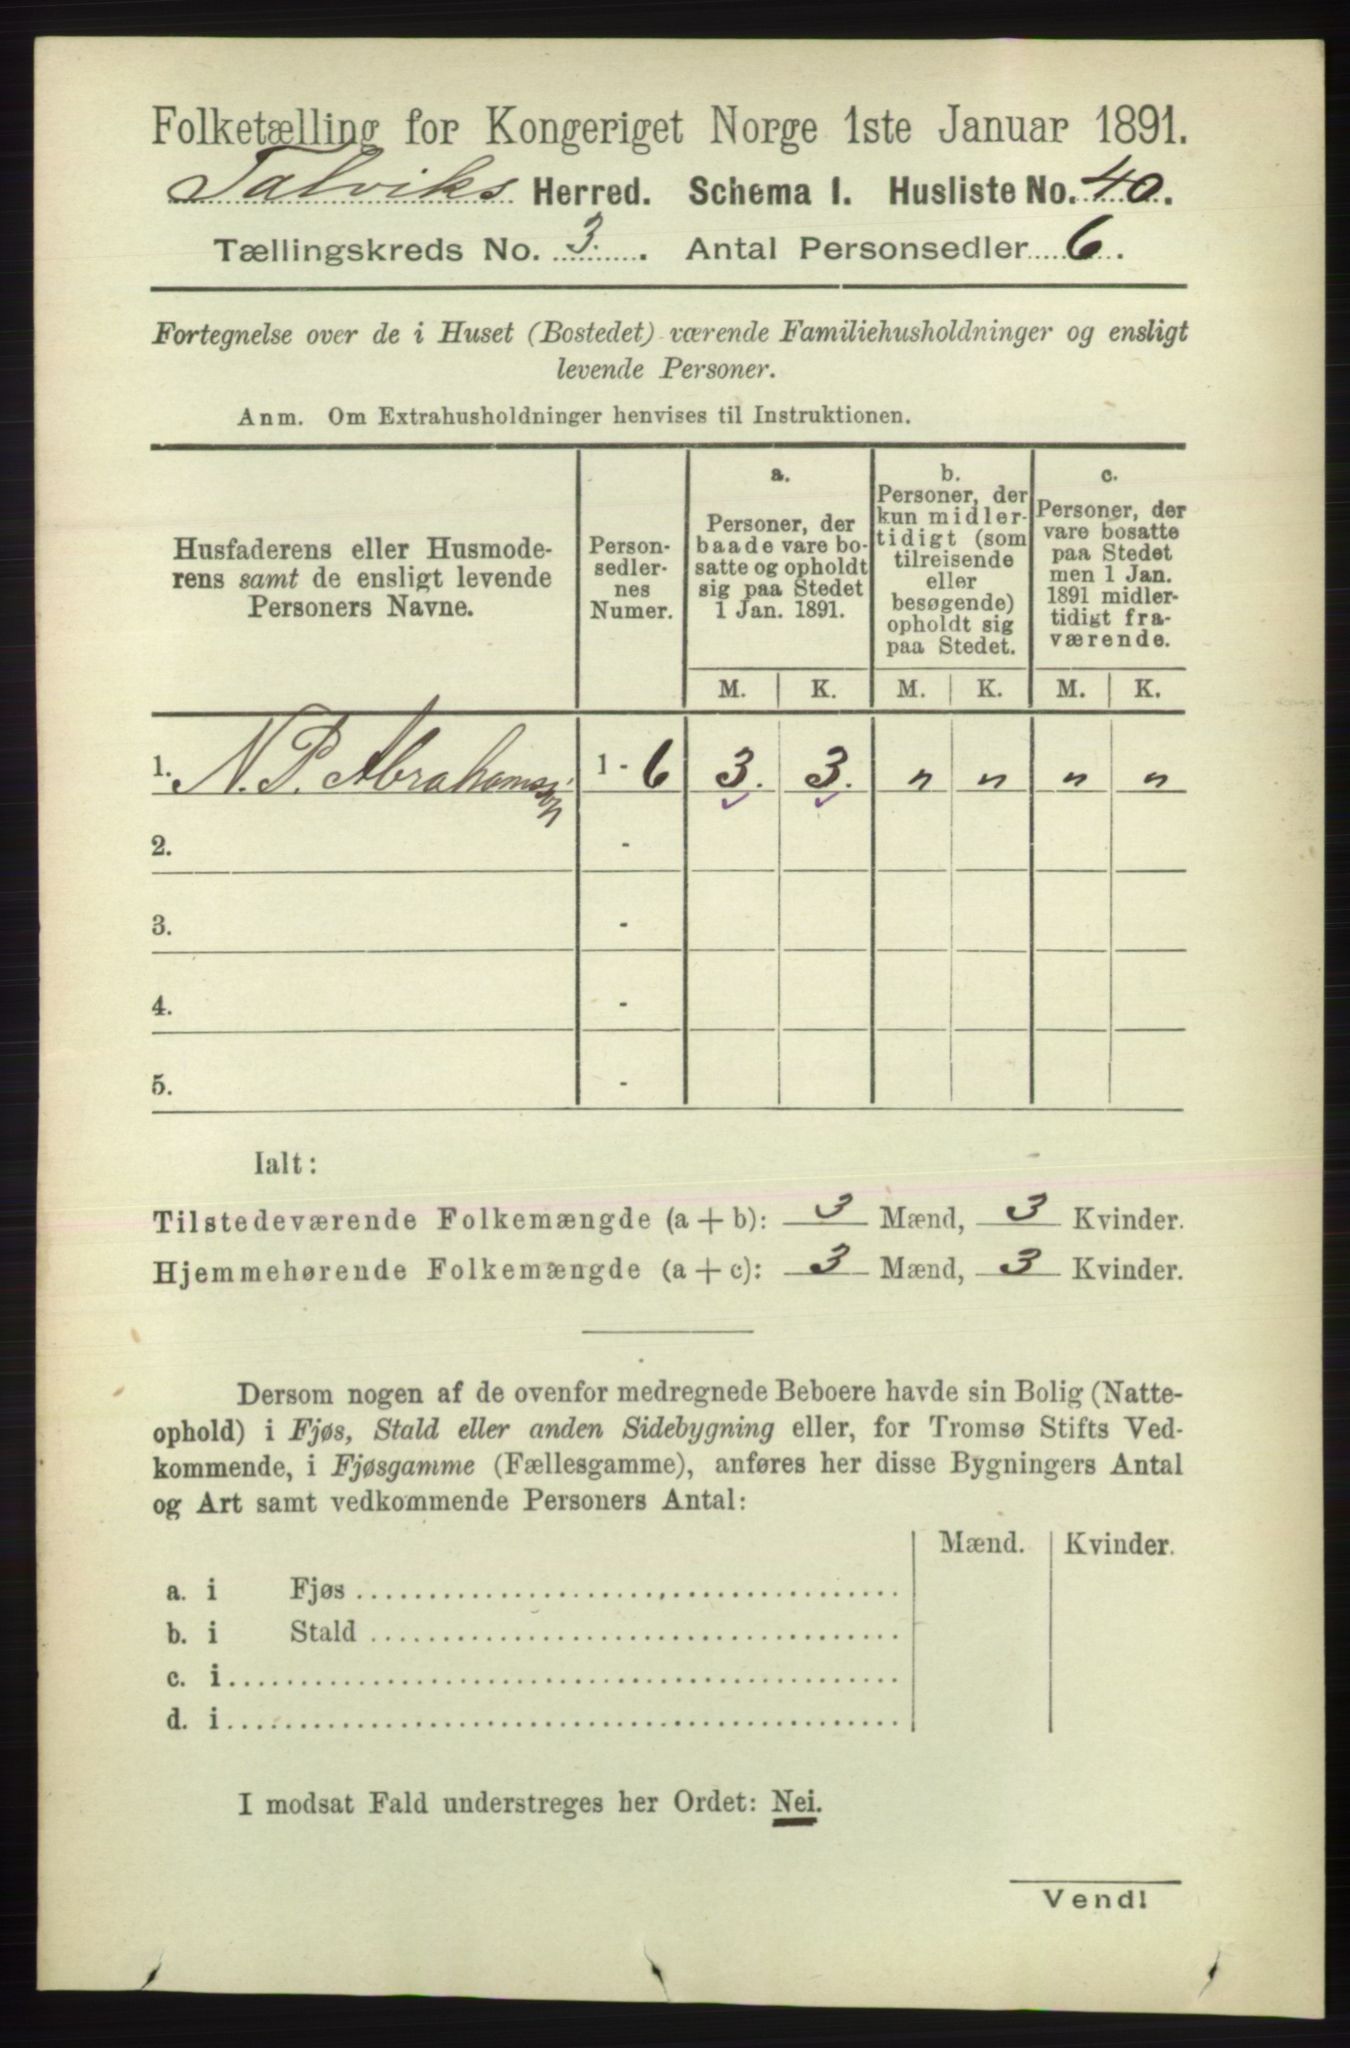 Folketælling for Kongeriget Norge 1ste Januar 1891.
Talviks Herred. Schema I. Husliste No. 40.
Tællingskreds No. 3. Antal Personsedler 6.
Fortegnelse over de i Huset (Bostedet) værende Familiehusholdninger og ensligt
levende Personer.
Anm. Om Extrahusholdninger henvises til Instruktionen.
Husfaderens eller Husmode-
rens samt de ensligt levende
Personers Navne.
Person-
sedler-
nes
Numer.
a.
Personer, der
baade vare bo-
satte og opholdt
sig paa Stedet
1 Jan. 1891.
b.
Personer, der
kun midler-
tidigt (som
tilreisende
eller
besøgende)
opholdt sig
paa Stedet.
c.
Personer, der
vare bosatte
paa Stedet
men 1 Jan.
1891 midler-
tidigt fra-
værende.
M. K. M. K. M. K.
1. N. P. Abrahamsen 1 - 6 3. 3. " " " "
2. -
3. -
4. -
5. -
Ialt:
Tilstedeværende Folkemængde (a + b): 3 Mænd, 3 Kvinder.
Hjemmehørende Folkemængde (a + c): 3 Mænd, 3 Kvinder.
Dersom nogen af de ovenfor medregnede Beboere havde sin Bolig (Natte-
ophold) i Fjøs, Stald eller anden Sidebygning eller, for Tromsø Stifts Ved-
kommende, i Fjøsgamme (Fællesgamme), anføres her disse Bygningers Antal
og Art samt vedkommende Personers Antal:
Mænd. Kvinder.
a. i Fjøs
b. i Stald
c. i
d. i
I modsat Fald understreges her Ordet: Nei.
Vend!